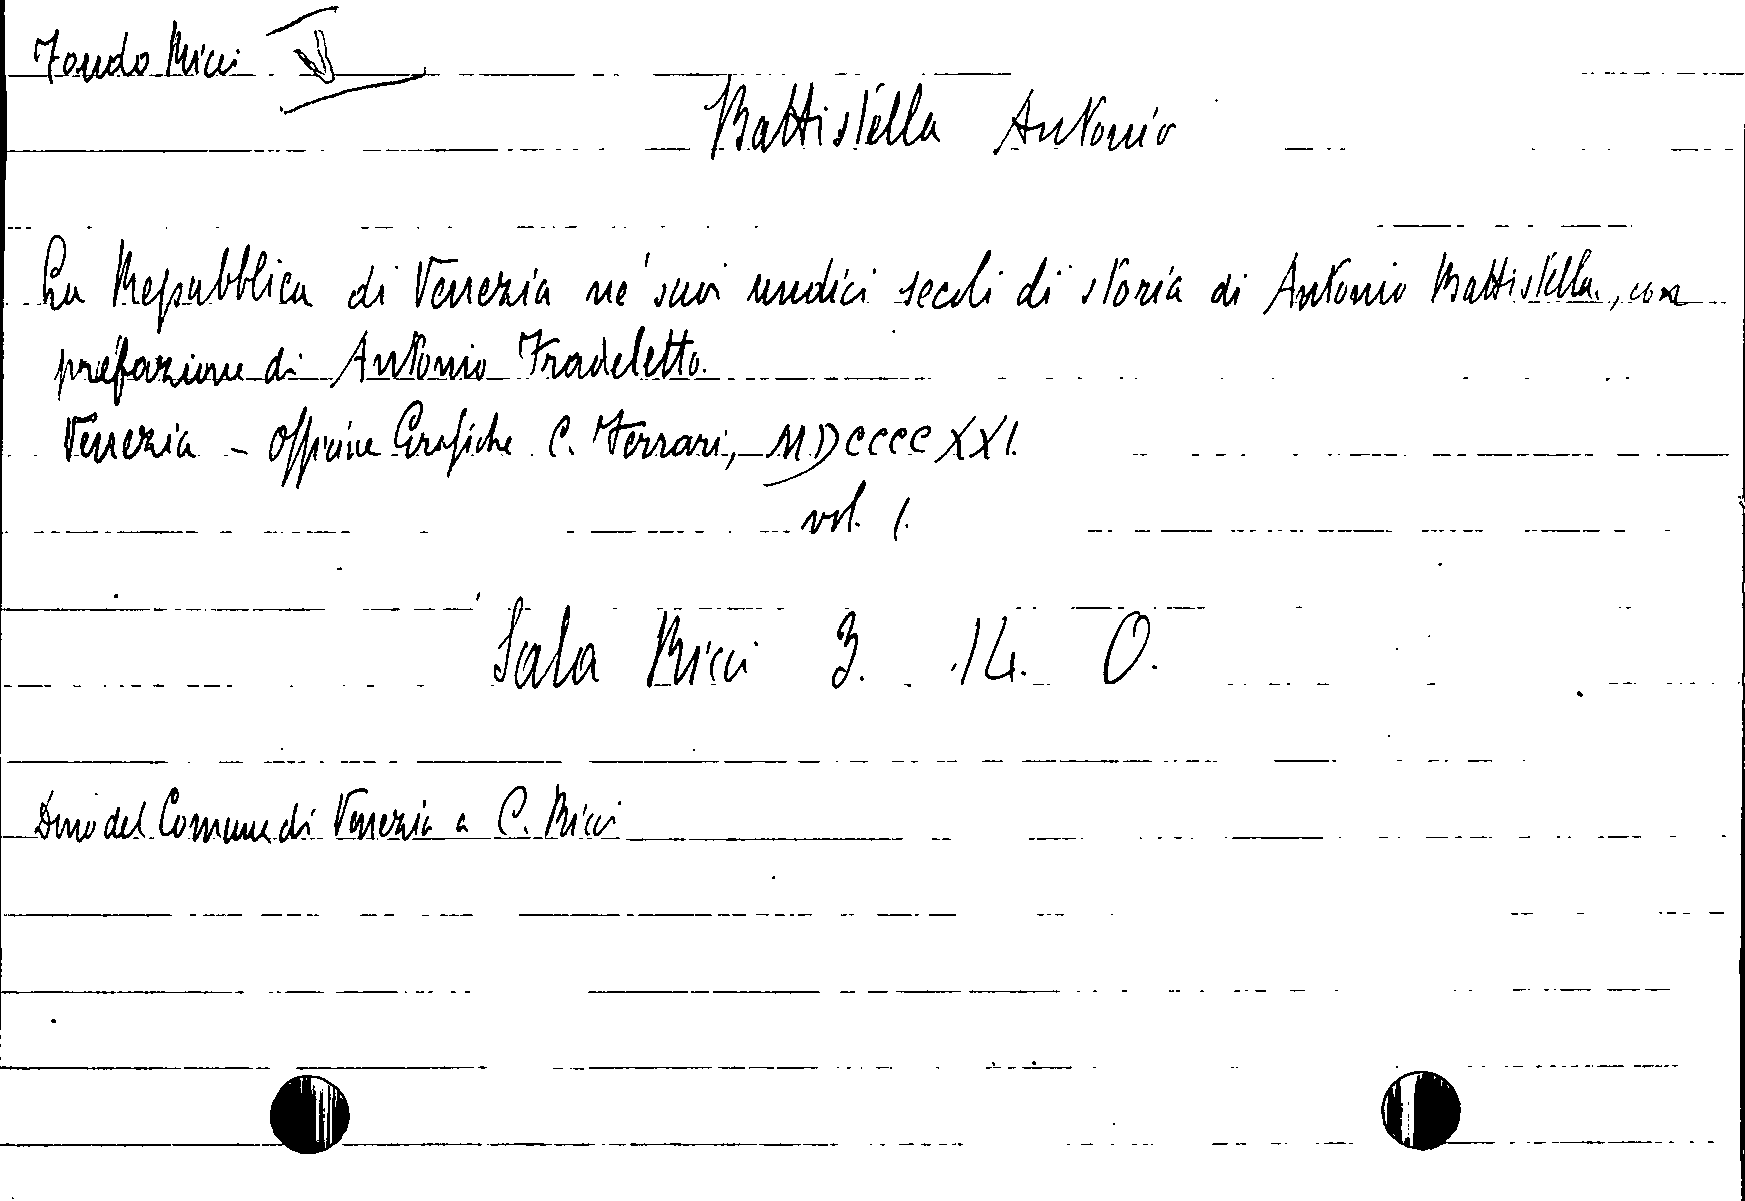 Fondo Ricci V
Battistella Antonio
La Repubblica di Venezia ne' suoi undici secoli di storia di Antonio Battistella, con
prefazione di Antonio Fradeletto.
Venezia - Officine Grafiche C. Ferrari, MDCCCCXXI.
vol. 1.
Sala Ricci 3. 14. O.
Dono del Comune di Venezia a C. Ricci